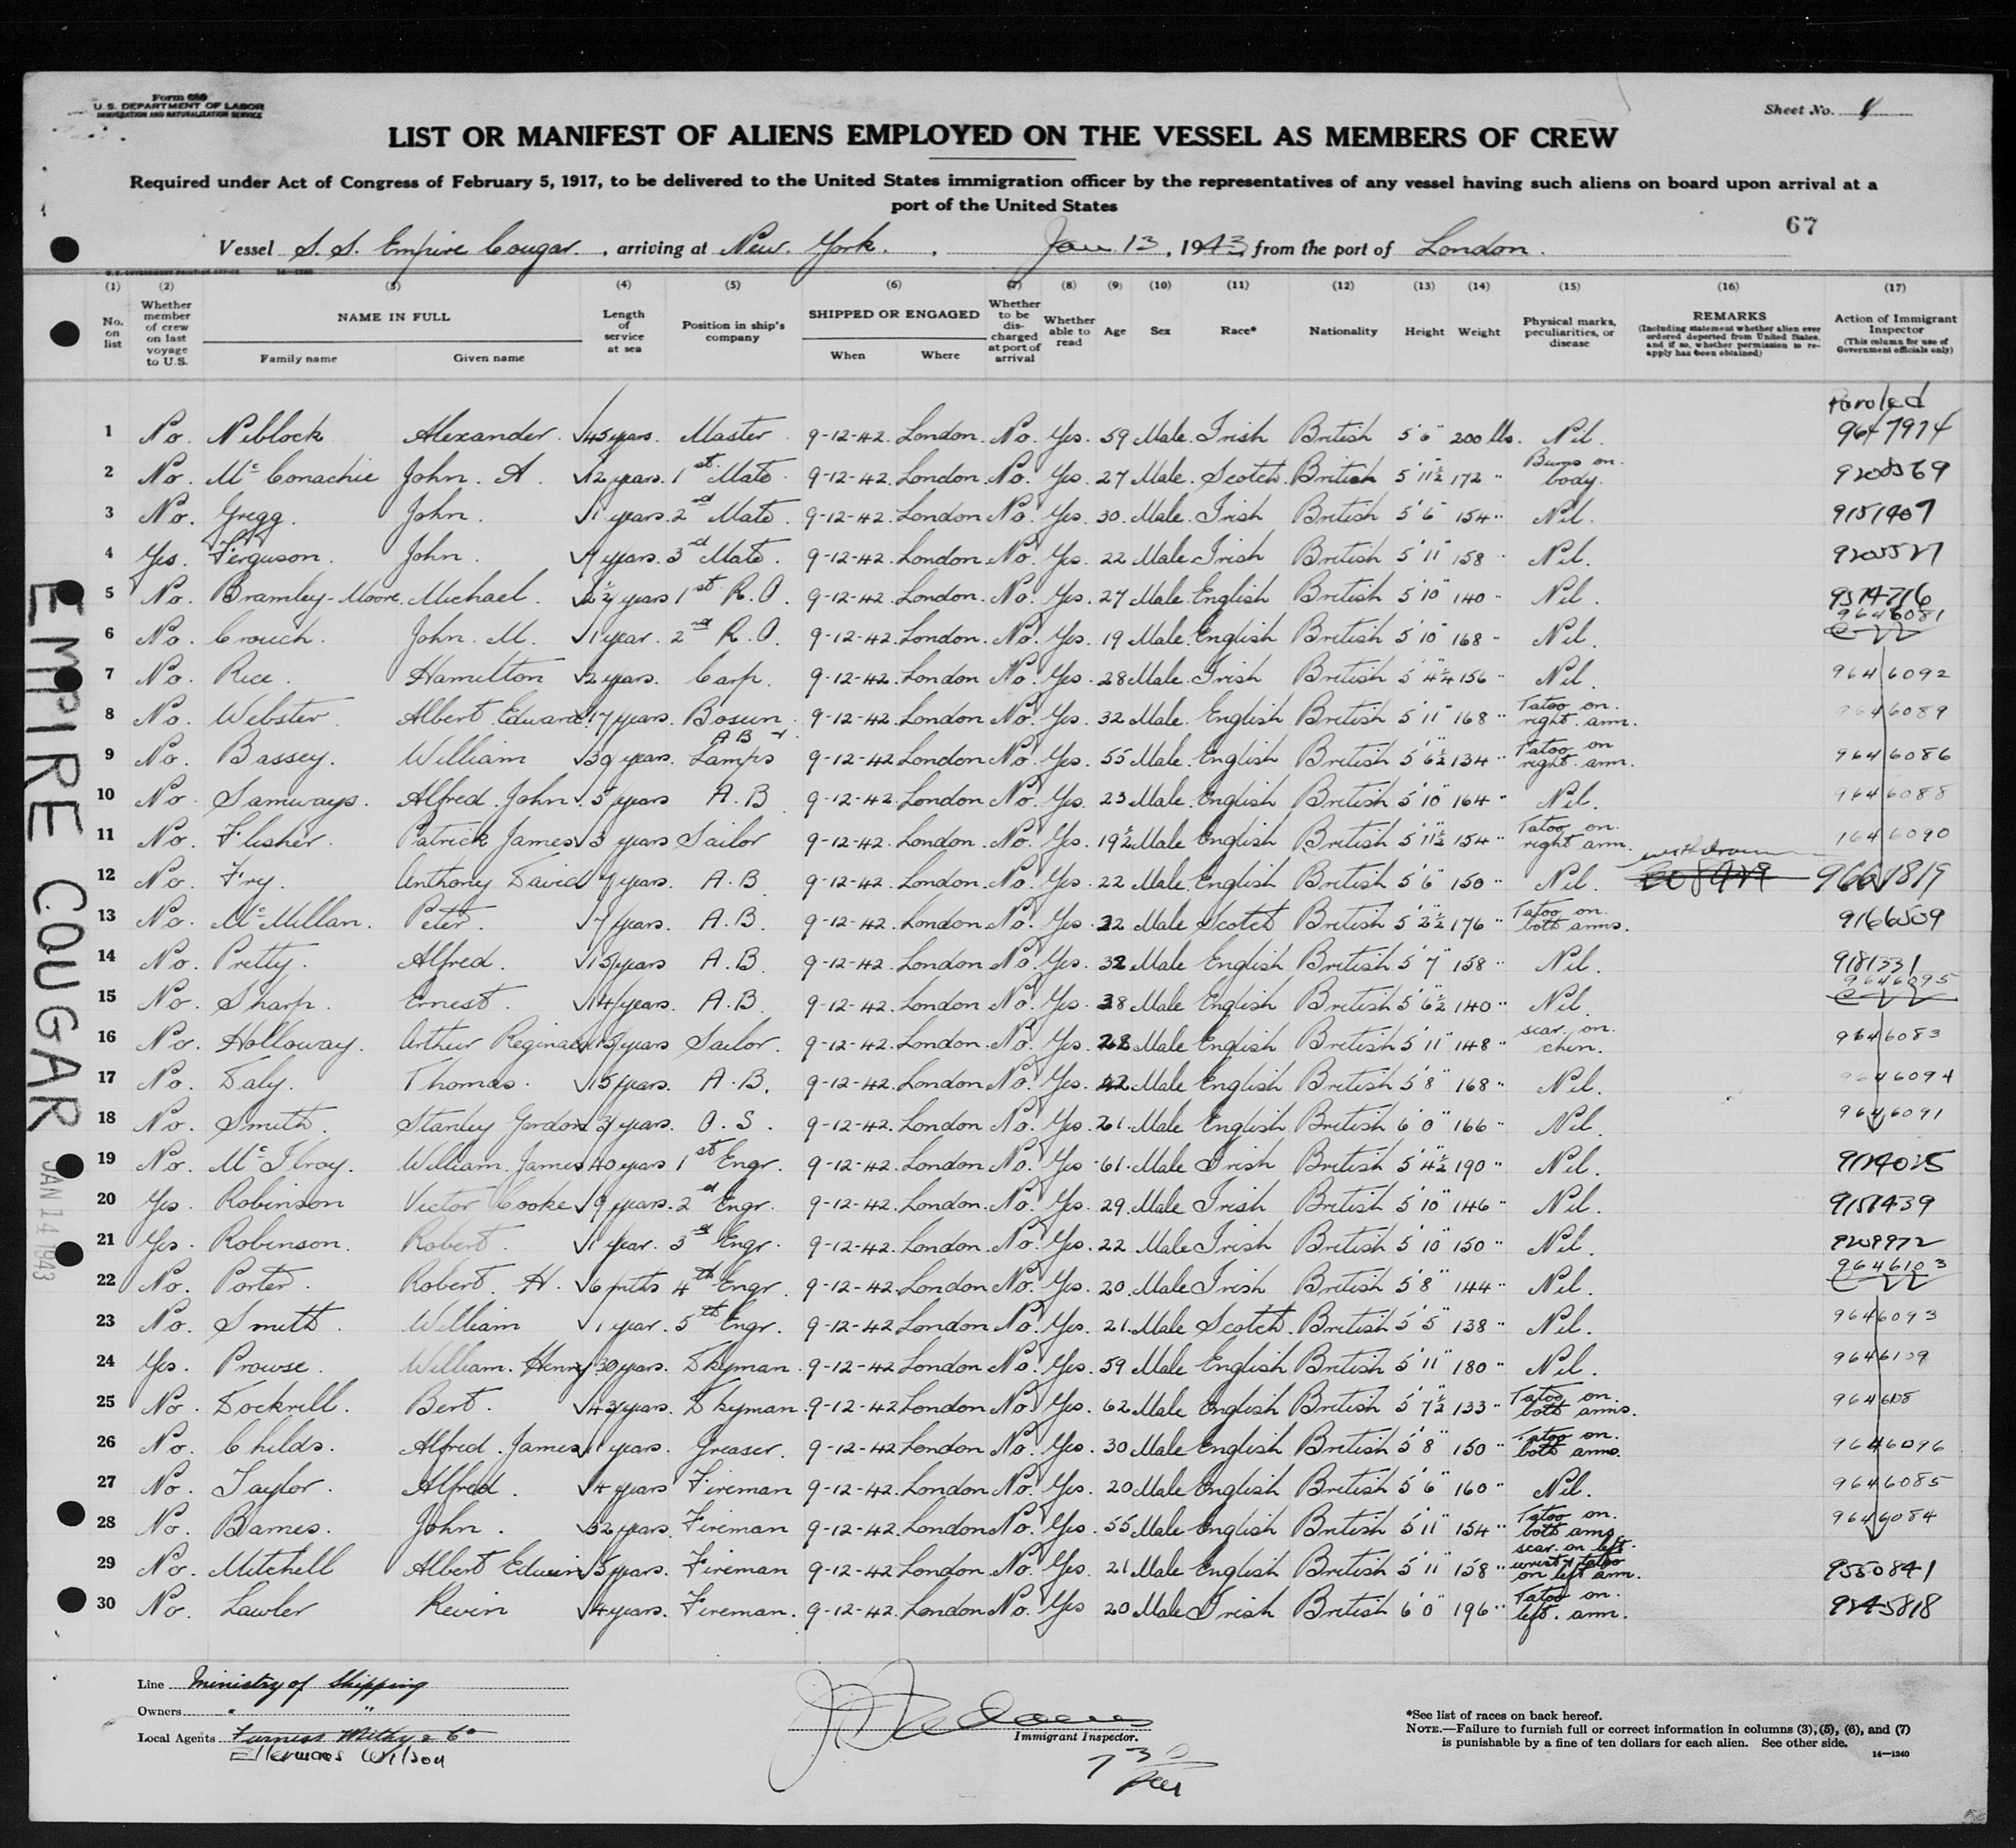 Form 680
U. S. DEPARTMENT OF LABOR
IMMIGRATION AND NATURALIZATION SERVICE
Sheet No. 1
LIST OR MANIFEST OF ALIENS EMPLOYED ON THE VESSEL AS MEMBERS OF CREW
Required under Act of Congress of February 5, 1917, to be delivered to the United States immigration officer by the representatives of any vessel having such aliens on board upon arrival at a
port of the United States
67
Vessel S. S. Empire Cougar, arriving at New York, Jan 13, 1943, from the port of London.
(1) (2) (3) (4) (5) (6) (7) (8) (9) (10) (11) (12) (13) (14) (15) (16) (17)
No. on list
Whether member of crew on last voyage to U.S.
NAME IN FULL
Family name Given name
Length of service at sea
Position in ship's company
SHIPPED OR ENGAGED
When Where
Whether to be discharged at port of arrival
Whether able to read
Age Sex Race* Nationality Height Weight
Physical marks, peculiarities, or disease
REMARKS
(Including statement whether alien ever ordered deported from United States, and if so, whether permission to reapply has been obtained)
Action of Immigrant Inspector
(This column for use of Government officials only)
Paroled
1 No. Niblock Alexander. 45 years. Master 9-12-42. London. No. Yes. 59 Male. Irish British 5'6" 200 lbs. Nil. 9647974
2 No. McConachie John. A. 12 years. 1st Mate. 9-12-42. London. No. Yes. 27 Male. Scotch. British 5'11½ 172 " Burns on body.
3 No. Gregg. John. years. 2nd Mate. 9-12-42. London No. Yes. 30. Male. Irish British 5'6" 154 " Nil. 9151407
4 Yes. Ferguson. John. years. 3rd Mate. 9-12-42. London No. Yes. 22 Male Irish British 5'11" 158 " Nil.
5 No. Bramley-Moore. Michael. years 1st R.O. 9-12-42. London. No. Yes. 27 Male. English British 5'10" 140 " Nil. 9574716
6 No. Crouch. John. M. 1 year. 2nd R.O. 9-12-42. London. No. Yes. 19 Male English British 5'10" 168 " Nil. 9646081
7 No. Rice. Hamilton 2 years. Carp. 9-12-42. London No. Yes. 28 Male. Irish British 5'4¼ 156 " Nil. 9646092
8 No. Webster. Albert Edward 17 years. Bosun. 9-12-42. London No. Yes. 32 Male. English British 5'11" 168 " Tatoo on. right. arm. 9646089
9 No. Bassey. William 39 years. A B & Lamps 9-12-42 London No. Yes. 55 Male. English British 5'6½ 134 " Tatoo on right arm. 9646086
10 No. Samways. Alfred. John. 5 years A.B 9-12-42. London No. Yes. 23 Male. English British 5'10" 164 " Nil. 9646088
11 No. Flisher. Patrick James 3 years Sailor 9-12-42. London. No. Yes. 19½ Male English British 5'11½ 154 " Tatoo on. right arm. 1646090
withdrawn
12 No. Fry. Anthony David years. A.B. 9-12-42. London No. Yes. 22 Male. English British 5'6" 150 " Nil. 9661819
13 No. McMillan. Peter. 7 years. A.B. 9-12-42. London No. Yes. 32 Male Scotch British 5'2½ 176 " Tatoo on. both arms. 9166509
14 No. Pretty. Alfred. 15 years A.B. 9-12-42. London No. Yes. 32 Male English British 5'7" 158 " Nil. 9181331
15 No. Sharp. Ernest. 14 years. A.B. 9-12-42. London No. Yes. 38 Male English British 5'6½ 140 " Nil. 9646095
16 No. Holloway. Arthur Reginald years Sailor. 9-12-42. London. No. Yes. 28 Male English British 5'11" 148 " scar. on. chin. 9646083
17 No. Daly. Thomas. 15 years. A.B. 9-12-42. London No. Yes. 42 Male English British 5'8" 168 " Nil. 9646094
18 No. Smith. Stanley Gordon years. O.S. 9-12-42. London No. Yes. 21. Male English British 6'0" 166 " Nil. 9646091
19 No. McIlroy. William. James 40 years 1st Engr. 9-12-42. London No. Yes. 61. Male Irish British 5'4½ 190 " Nil.
20 Yes. Robinson Victor Cooke 9 years. 2nd Engr. 9-12-42. London. No. Yes. 29. Male Irish British 5'10" 146 " Nil. 9151439
21 Yes. Robinson. Robert. 1 year. 3rd Engr. 9-12-42. London. No. Yes. 22 Male Irish British 5'10" 150 " Nil. 9209972
22 No. Porter. Robert. H. 6 mths 4th Engr. 9-12-42. London No. Yes. 20. Male Irish British 5'8" 144 " Nil. 9646103
23 No. Smith. William 1 year. 5th Engr. 9-12-42 London No. Yes. 21. Male Scotch. British 5'5" 138 " Nil. 9646093
24 Yes. Prowse. William. Henry. 30 years. Dkyman. 9-12-42 London No. Yes. 59 Male English British 5'11" 180 " Nil. 9646109
25 No. Dockrell. Bert. 43 years. Dkyman. 9-12-42 London No. Yes. 62 Male English British 5'7½ 133 " Tatoo on. both arms.
26 No. Childs. Alfred. James years. Greaser. 9-12-42 London No. Yes. 30 Male English British 5'8" 150 " Tatoo on. both arms. 9646096
27 No. Taylor. Alfred. 4 years Fireman 9-12-42. London No. Yes. 20 Male English British 5'6" 160 " Nil. 9646085
28 No. Barnes. John. 32 years. Fireman 9-12-42. London No. Yes. 55 Male English British 5'11" 154 " Tatoo on. both arms. 9646084
29 No. Mitchell Albert Edwin 5 years. Fireman 9-12-42. London No. Yes. 21 Male English British 5'11" 158 " scar. on left. wrist & tatoo on left arm. 9550841
30 No. Lawler Kevin 4 years. Fireman. 9-12-42. London No. Yes 20 Male Irish British 6'0" 196 " Tatoo on. left. arm.
EMPIRE COUGAR
JAN 14 1943
Line Ministry of Shipping
Owners " "
Local Agents Furness Withy & Co
Ellermans Wilson
Immigrant Inspector.
*See list of races on back hereof.
NOTE.—Failure to furnish full or correct information in columns (3), (5), (6), and (7)
is punishable by a fine of ten dollars for each alien. See other side.
14—1240